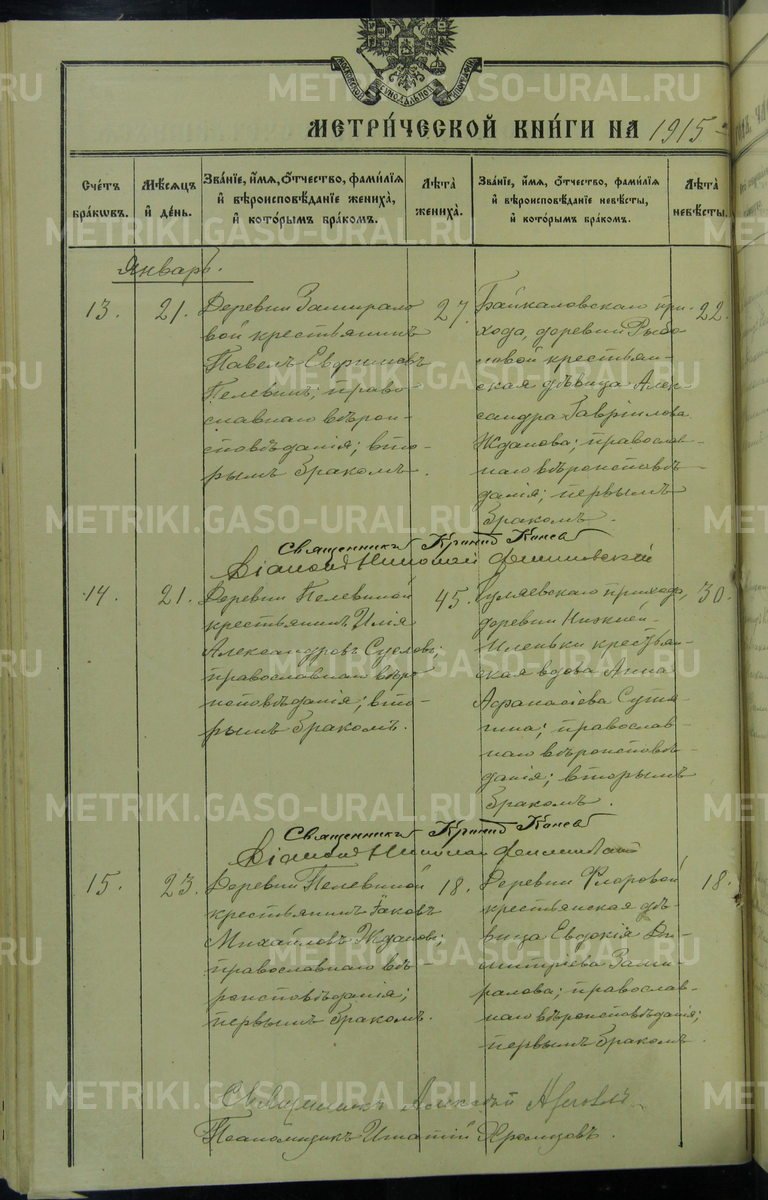 МЕТРИ́ЧЕСКОЙ КНИ́ГИ НА 1915
Сче́тъ бра́кѡвъ.
Мѣ́сѧцъ и҆ де́нь.
Зва́нїе, и҆́мѧ, ѻ҆́тчество, фами́лїѧ и҆ вѣроисповѣ́данїе жениха̀, и҆ кото́рымъ бра́комъ.
Лѣ́та жениха̀.
Зва́нїе, и҆́мѧ, ѻ҆́тчество, фами́лїѧ и҆ вѣроисповѣ́данїе невѣ́сты, и҆ кото́рымъ бра́комъ.
Лѣ́та невѣ́сты.
Январь.
13.
21.
Деревни Замирало
вой крестьянинъ
Павелъ
Пелевинъ; право-
славнаго вѣрои-
сповѣданія; вто-
рымъ бракомъ.
27.
Байкаловскаго при-
хода, деревни
крестьян-
ская дѣвица Алек-
сандра Гавріилова
Жданова; православ-
наго вѣроисповѣ-
данія; первымъ
бракомъ.
22.
Священникъ
Діаконъ Николай
14.
21.
Деревни Пелевиной
крестьянинъ Илія
Александровъ Сусловъ;
православнаго вѣро
исповѣданія; вто-
рымъ бракомъ.
45.
прихода,
деревни Нижней
крестьян-
ская вдова Анна
Аѳанасіева Сутя-
гина; православ-
наго вѣроисповѣ-
данія; вторымъ
бракомъ.
30.
Священникъ
Діаконъ Николай
15.
23.
Деревни Пелевиной
крестьянинъ Іаковъ
Михайловъ Ждановъ;
православнаго вѣ-
роисповѣданія;
первымъ бракомъ.
18.
Деревни Флоровой
крестьянская дѣ-
вица Евдокія Ди-
митріева Зами-
ралова; православ-
наго вѣроисповѣданія;
первымъ бракомъ.
18.
Священникъ Алексій
Псаломщикъ Игнатій
METRIKI.GASO-URAL.RU